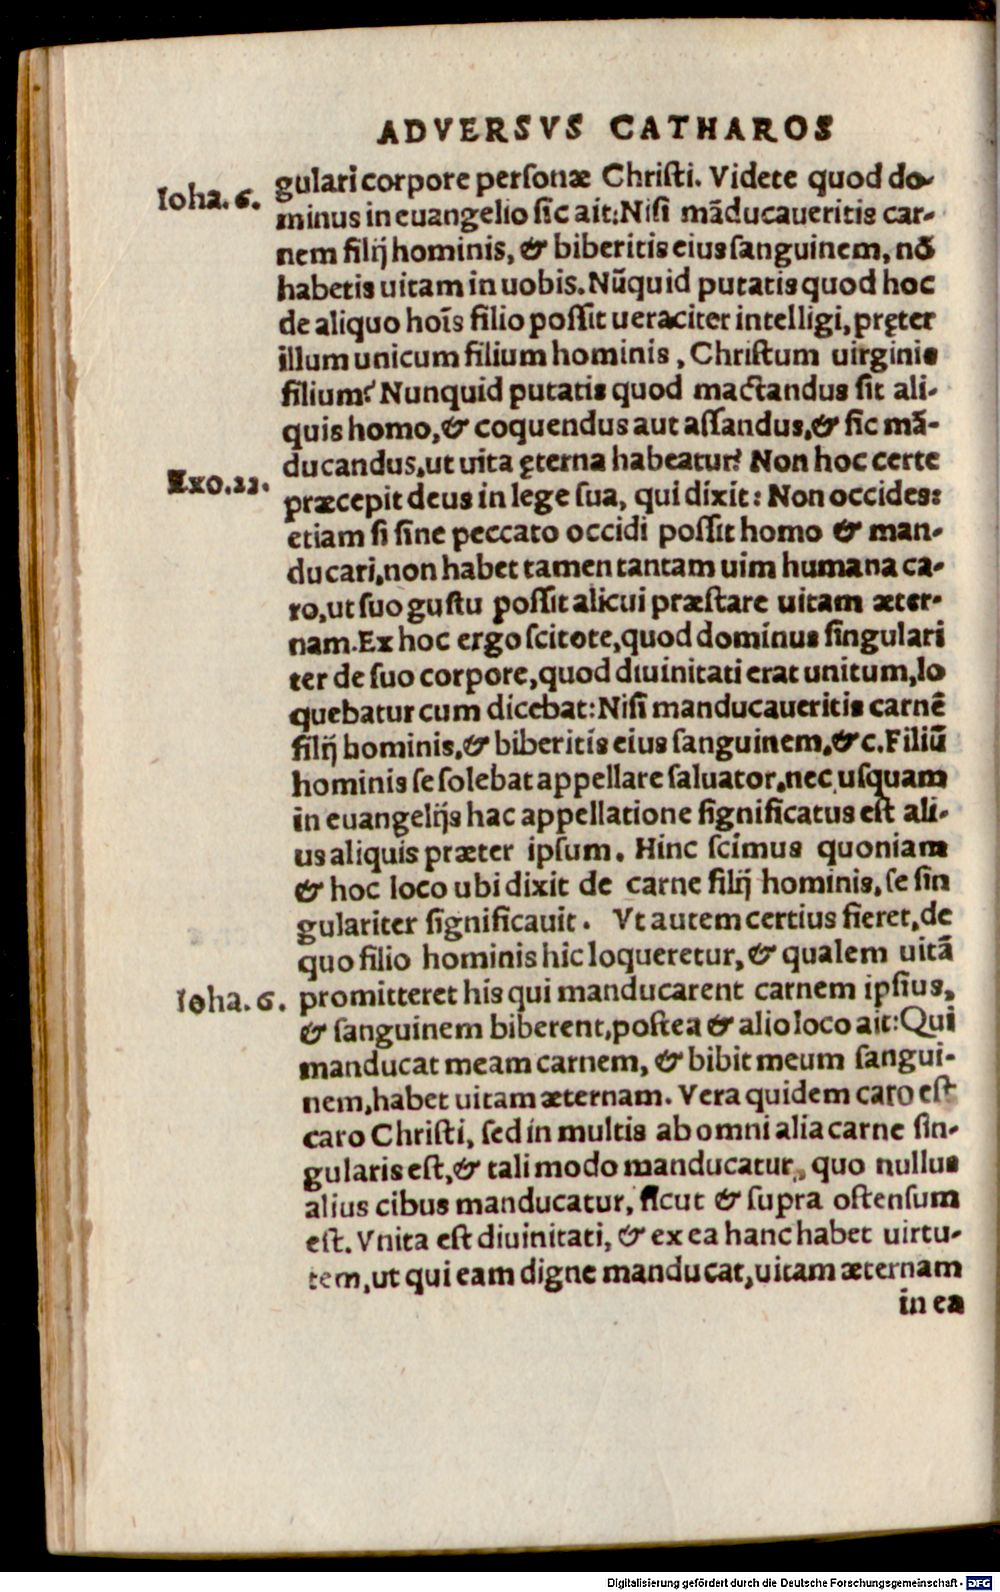 ADVERSVS CATHAROS
Ioha. 6.
gulari corpore personæ Christi. Videte quod do-
minus in euangelio sic ait: Nisi mãducaueritis car-
nem filij hominis, & biberitis eius sanguinem, nõ
habetis uitam in uobis. Nũquid putatis quod hoc
de aliquo hoĩs filio possit ueraciter intelligi, pręter
illum unicum filium hominis, Christum uirginis
filium? Nunquid putatis quod mactandus sit ali-
quis homo, & coquendus aut assandus, & sic mã-
ducandus, ut uita ęterna habeatur? Non hoc certe
Exo. 22.
præcepit deus in lege sua, qui dixit: Non occides:
etiam si sine peccato occidi possit homo & man-
ducari, non habet tamen tantam uim humana ca-
ro, ut suo gustu possit alicui præstare uitam æter-
nam. Ex hoc ergo scitote, quod dominus singulari
ter de suo corpore, quod diuinitati erat unitum, lo
quebatur cum dicebat: Nisi manducaueritis carnẽ
filij hominis, & biberitis eius sanguinem, &c. Filiũ
hominis se solebat appellare saluator, nec usquam
in euangelijs hac appellatione significatus est ali-
us aliquis præter ipsum. Hinc scimus quoniam
& hoc loco ubi dixit de carne filij hominis, se sin
gulariter significauit. Vt autem certius fieret, de
quo filio hominis hic loqueretur, & qualem uitã
Ioha. 6.
promitteret his qui manducarent carnem ipsius,
& sanguinem biberent, postea & alio loco ait: Qui
manducat meam carnem, & bibit meum sangui-
nem, habet uitam æternam. Vera quidem caro est
caro Christi, sed in multis ab omni alia carne sin-
gularis est, & tali modo manducatur, quo nullus
alius cibus manducatur, sicut & supra ostensum
est. Vnita est diuinitati, & ex ea hanc habet uirtu-
tem, ut qui eam digne manducat, uitam æternam
in ea
Digitalisierung gefördert durch die Deutsche Forschungsgemeinschaft - DFG